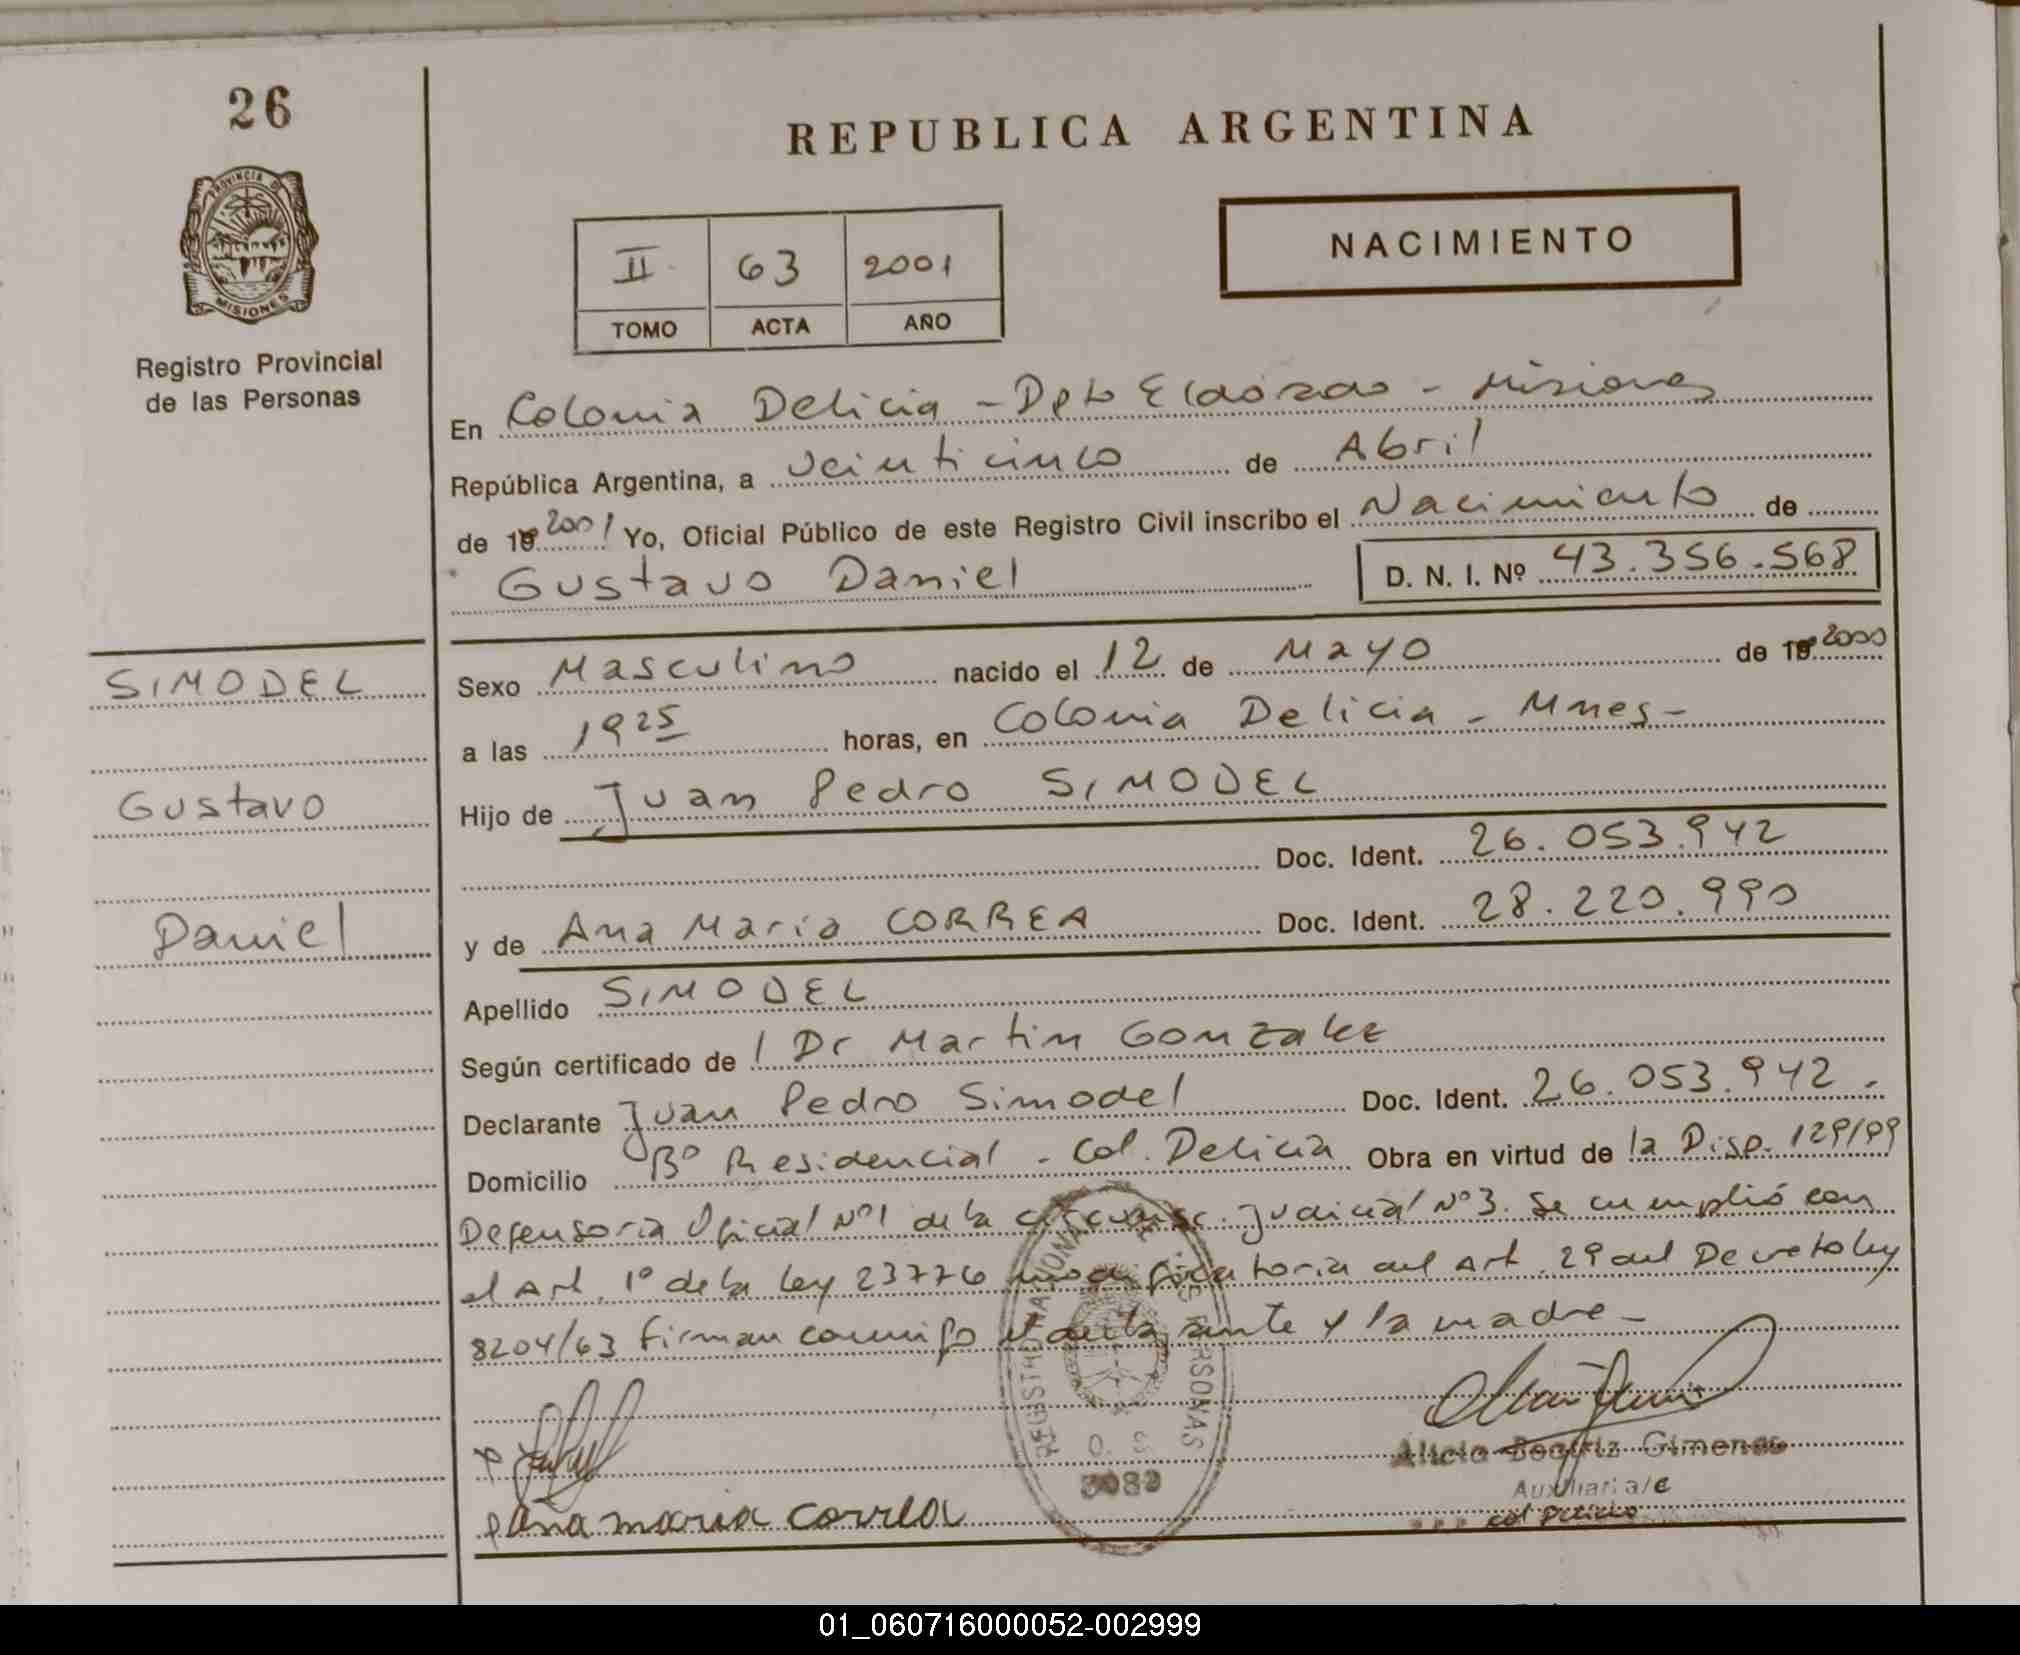 26
PROVINCIA DE
MISIONES
Registro Provincial
de las Personas
REPUBLICA ARGENTINA
II 63 2001
TOMO ACTA AÑO
NACIMIENTO
En Colonia Delicia - Dpto Eldorado - Misiones
República Argentina, a veinticinco de Abril
de 19 2001 Yo, Oficial Público de este Registro Civil inscribo el Nacimiento de
Gustavo Daniel D. N. I. Nº 43.356.568
SIMODEL
Gustavo
Daniel
Sexo Masculino nacido el 12 de Mayo de 19 2000
a las 1925 horas, en Colonia Delicia - Mnes -
Hijo de Juan Pedro SIMODEL
Doc. Ident. 26.053.942
y de Ana Maria CORREA Doc. Ident. 28.220.990
Apellido SIMODEL
Según certificado de l Dr Martin Gonzalez
Declarante Juan Pedro Simodel Doc. Ident. 26.053.942.
Domicilio Bº Residencial - Col. Delicia Obra en virtud de la Disp. 129/99
Defensoria Oficial Nº1 de la circunsc. Judicial Nº3. Se cumplió con
el Art. 1º de la ley 23776 modificatoria del Art. 29 del Decreto ley
8204/63 firman conmigo el declarante y la madre -
REGISTRO NACIONAL DE LAS PERSONAS
O. S.
3082
Ana maria correa
Alicia Beatriz Gimenez
Auxiliar a/c
Col Delicia
01_060716000052-002999